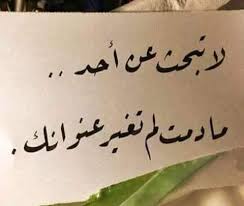 لا تبحث عن أحد ..
مادمت لم تغير عنوانك .